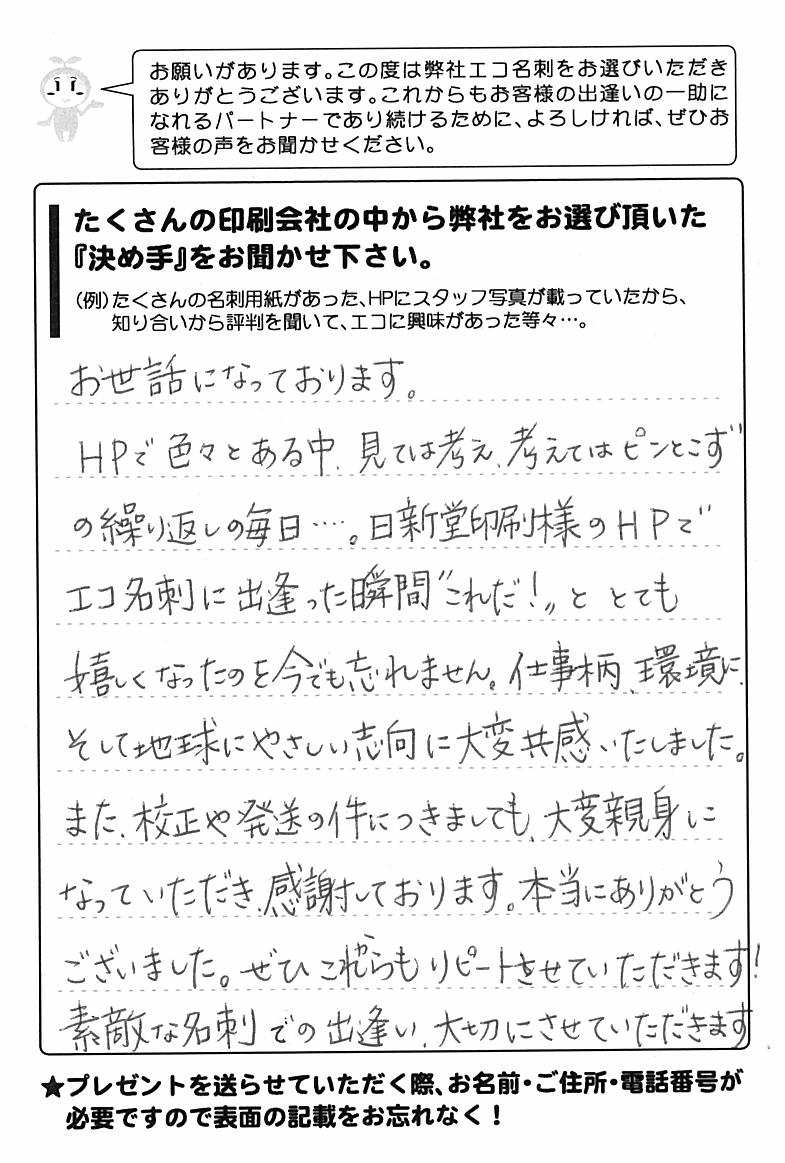 お願いがあります。この度は弊社エコ名刺をお選びいただき
ありがとうございます。これからもお客様の出逢いの一助に
なれるパートナーであり続けるために、よろしければ、ぜひお
客様の声をお聞かせください。
たくさんの印刷会社の中から弊社をお選び頂いた
『決め手』をお聞かせ下さい。
(例)たくさんの名刺用紙があった、HPにスタッフ写真が載っていたから、
知り合いから評判を聞いて、エコに興味があった等々…。
お世話になっております。
HPで色々とある中、見ては考え、考えてはピンとこず
の繰り返しの毎日……。日新堂印刷様のHPで
エコ名刺に出逢った瞬間“これだ!〟と とても
嬉しくなったのを今でも忘れません。仕事柄、環境に、
そして地球にやさしい志向に大変共感いたしました。
また、校正や発送の件につきましても、大変親身に
なっていただき、感謝しております。本当にありがとう
ございました。ぜひ これからもリピートさせていただきます!
素敵な名刺での出逢い、大切にさせていただきます
★プレゼントを送らせていただく際、お名前・ご住所・電話番号が
必要ですので表面の記載をお忘れなく!